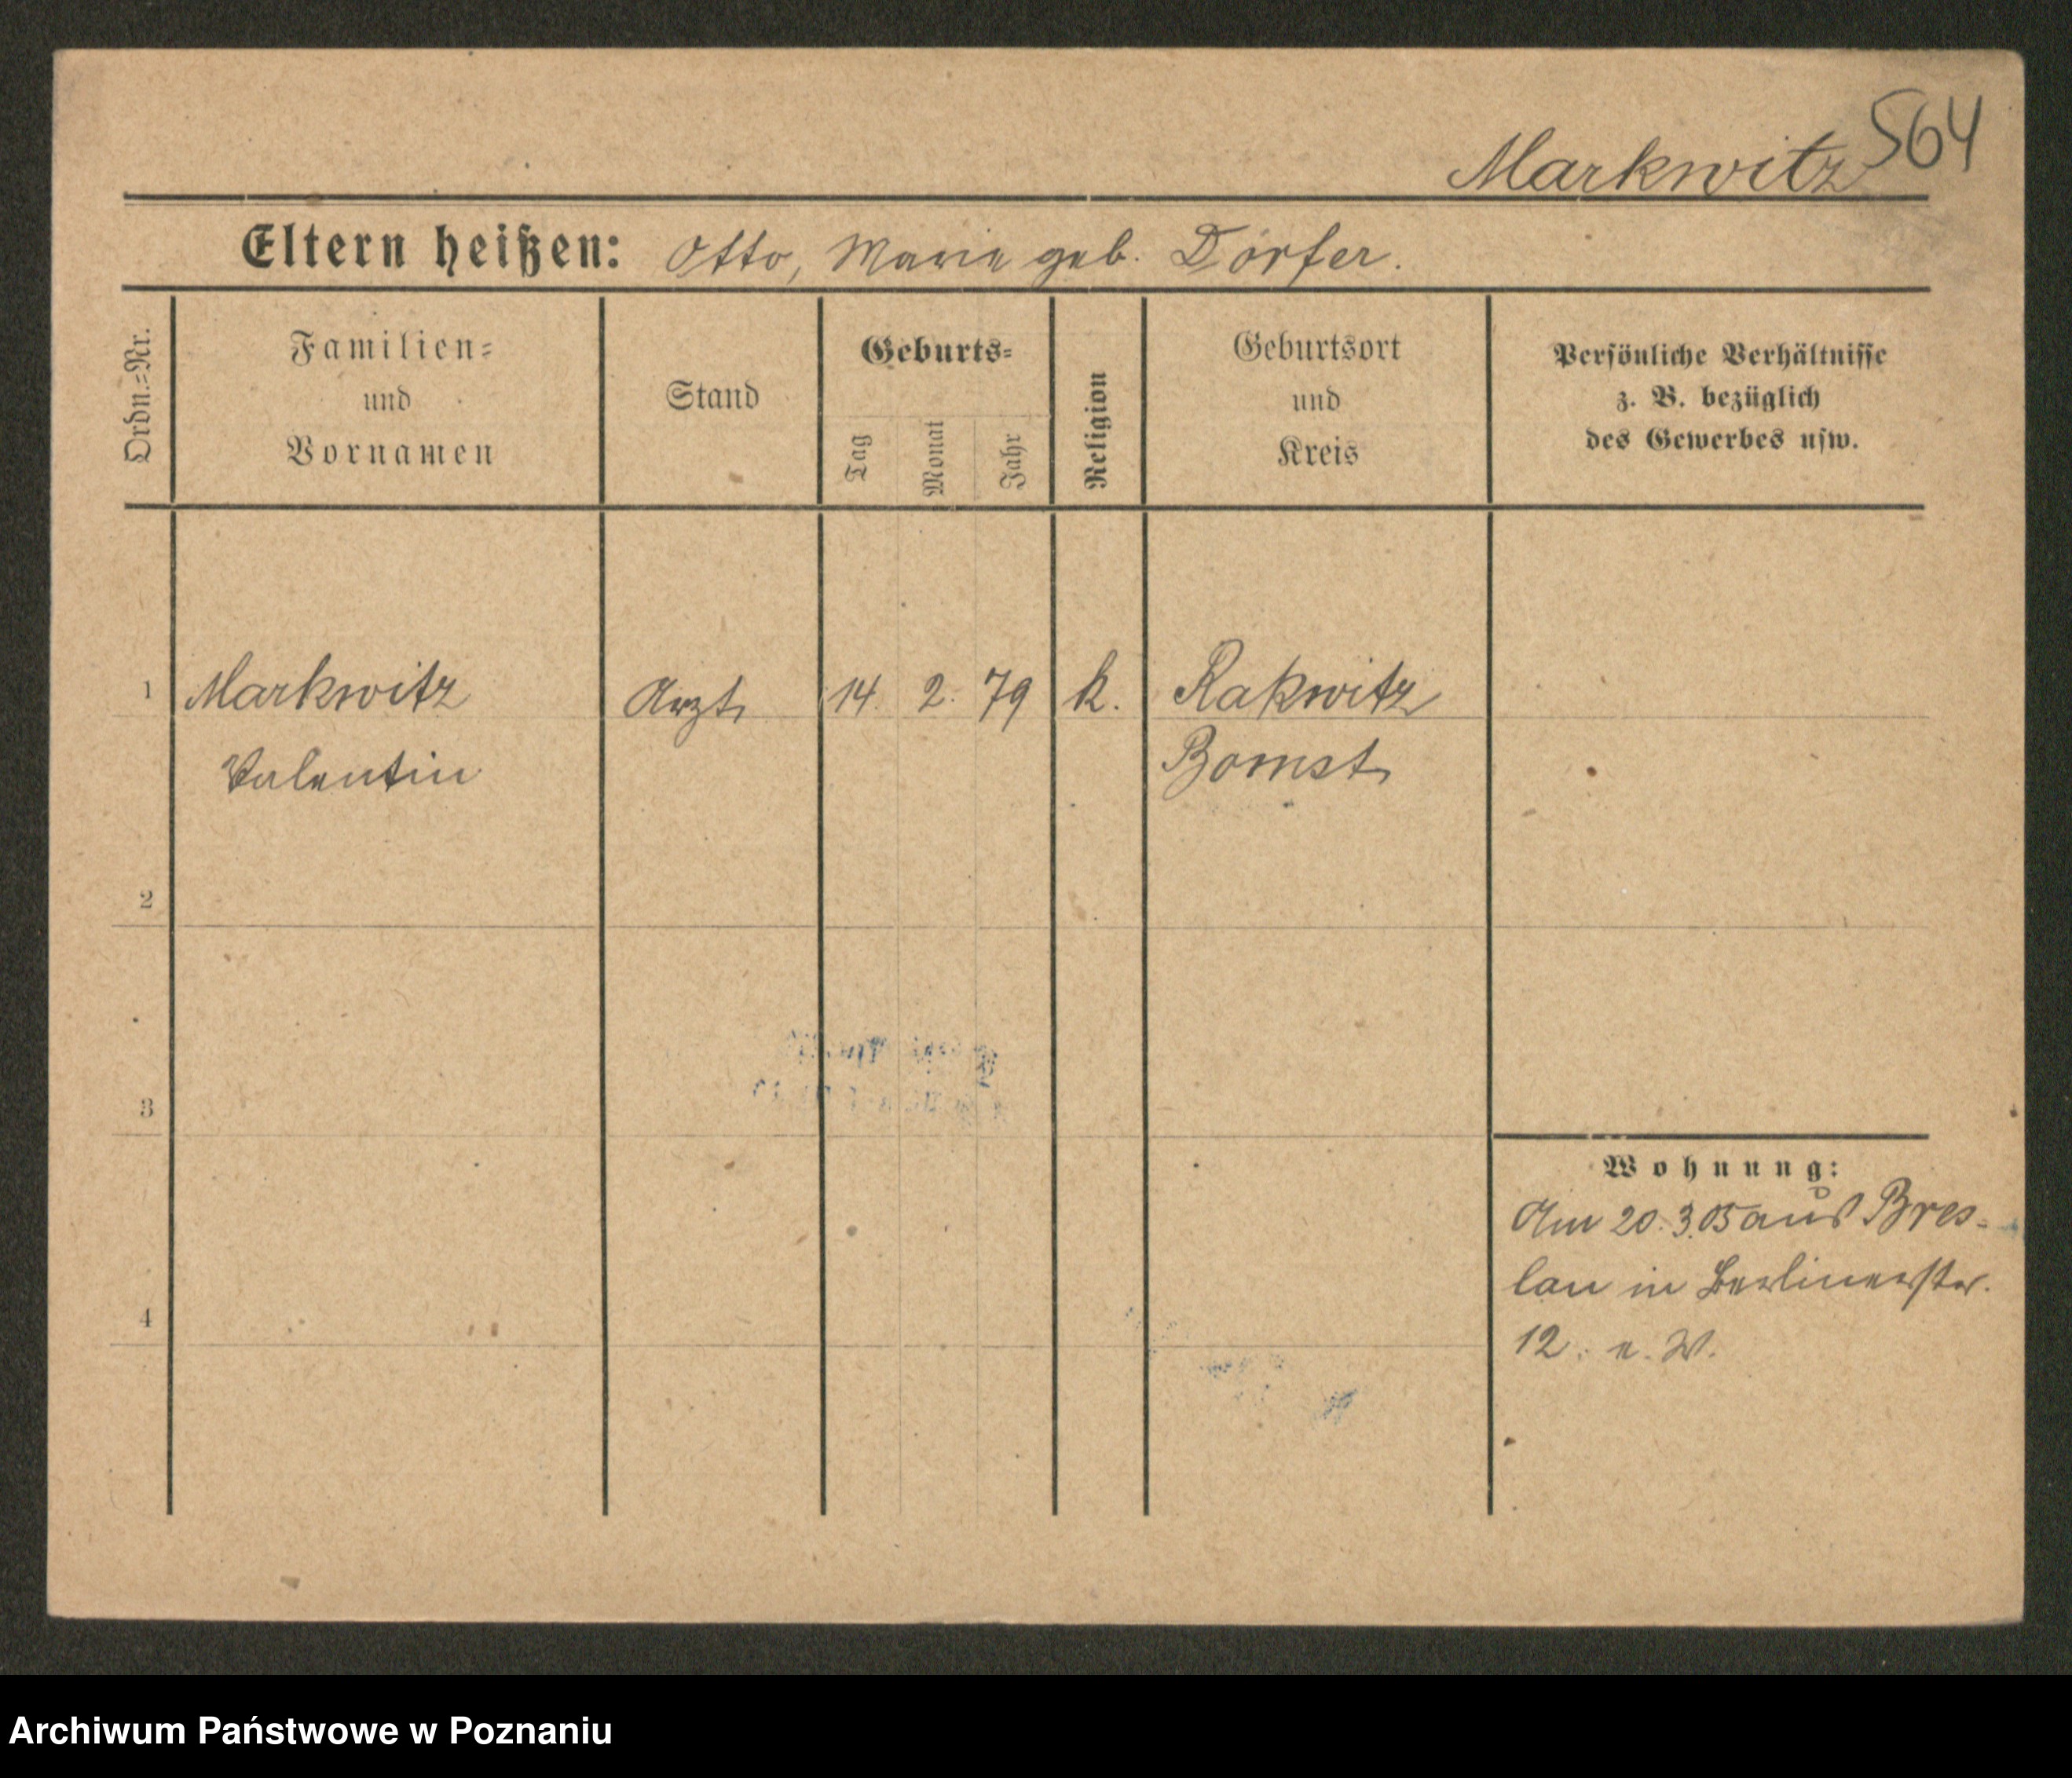 564
Markwitz
Eltern heißen: Otto, Marie geb. Dörfer.
Ordn.=Nr.
Familien=
und
Vornamen
Stand
Geburts=
Tag
Monat
Jahr
Religion
Geburtsort
und
Kreis
Persönliche Verhältnisse
z. B. bezüglich
des Gewerbes usw.
1 Markwitz Arzt 14. 2. 79 k. Rakwitz
Valentin Bomst
2
3
4
Wohnung:
Am 20.3.05 aus Bres-
lau in Berlinerstr.
12. e. W.
Archiwum Państwowe w Poznaniu